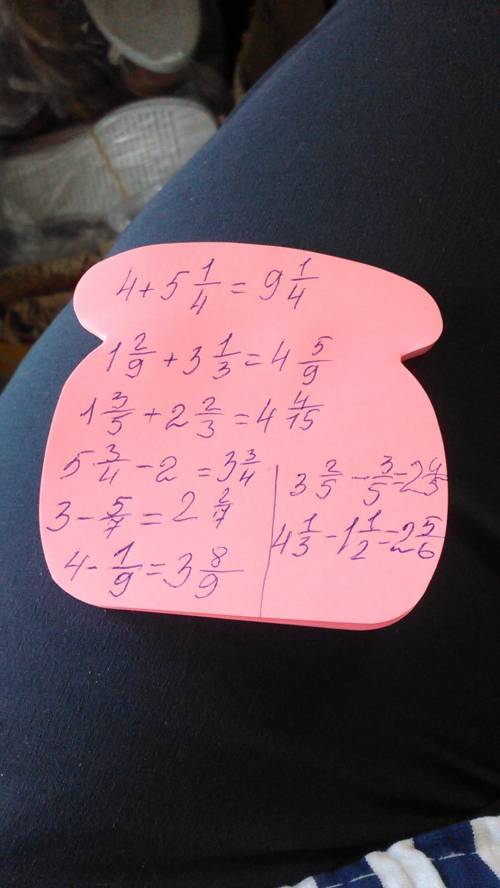 4 + 5 1/4 = 9 1/4
1 2/9 + 3 1/3 = 4 5/9
1 3/5 + 2 2/3 = 4 4/15
5 3/4 - 2 = 3 3/4
3 - 5/7 = 2 2/7
4 - 1/9 = 3 8/9
3 2/5 - 3/5 = 2 4/5
4 1/3 - 1 1/2 = 2 5/6